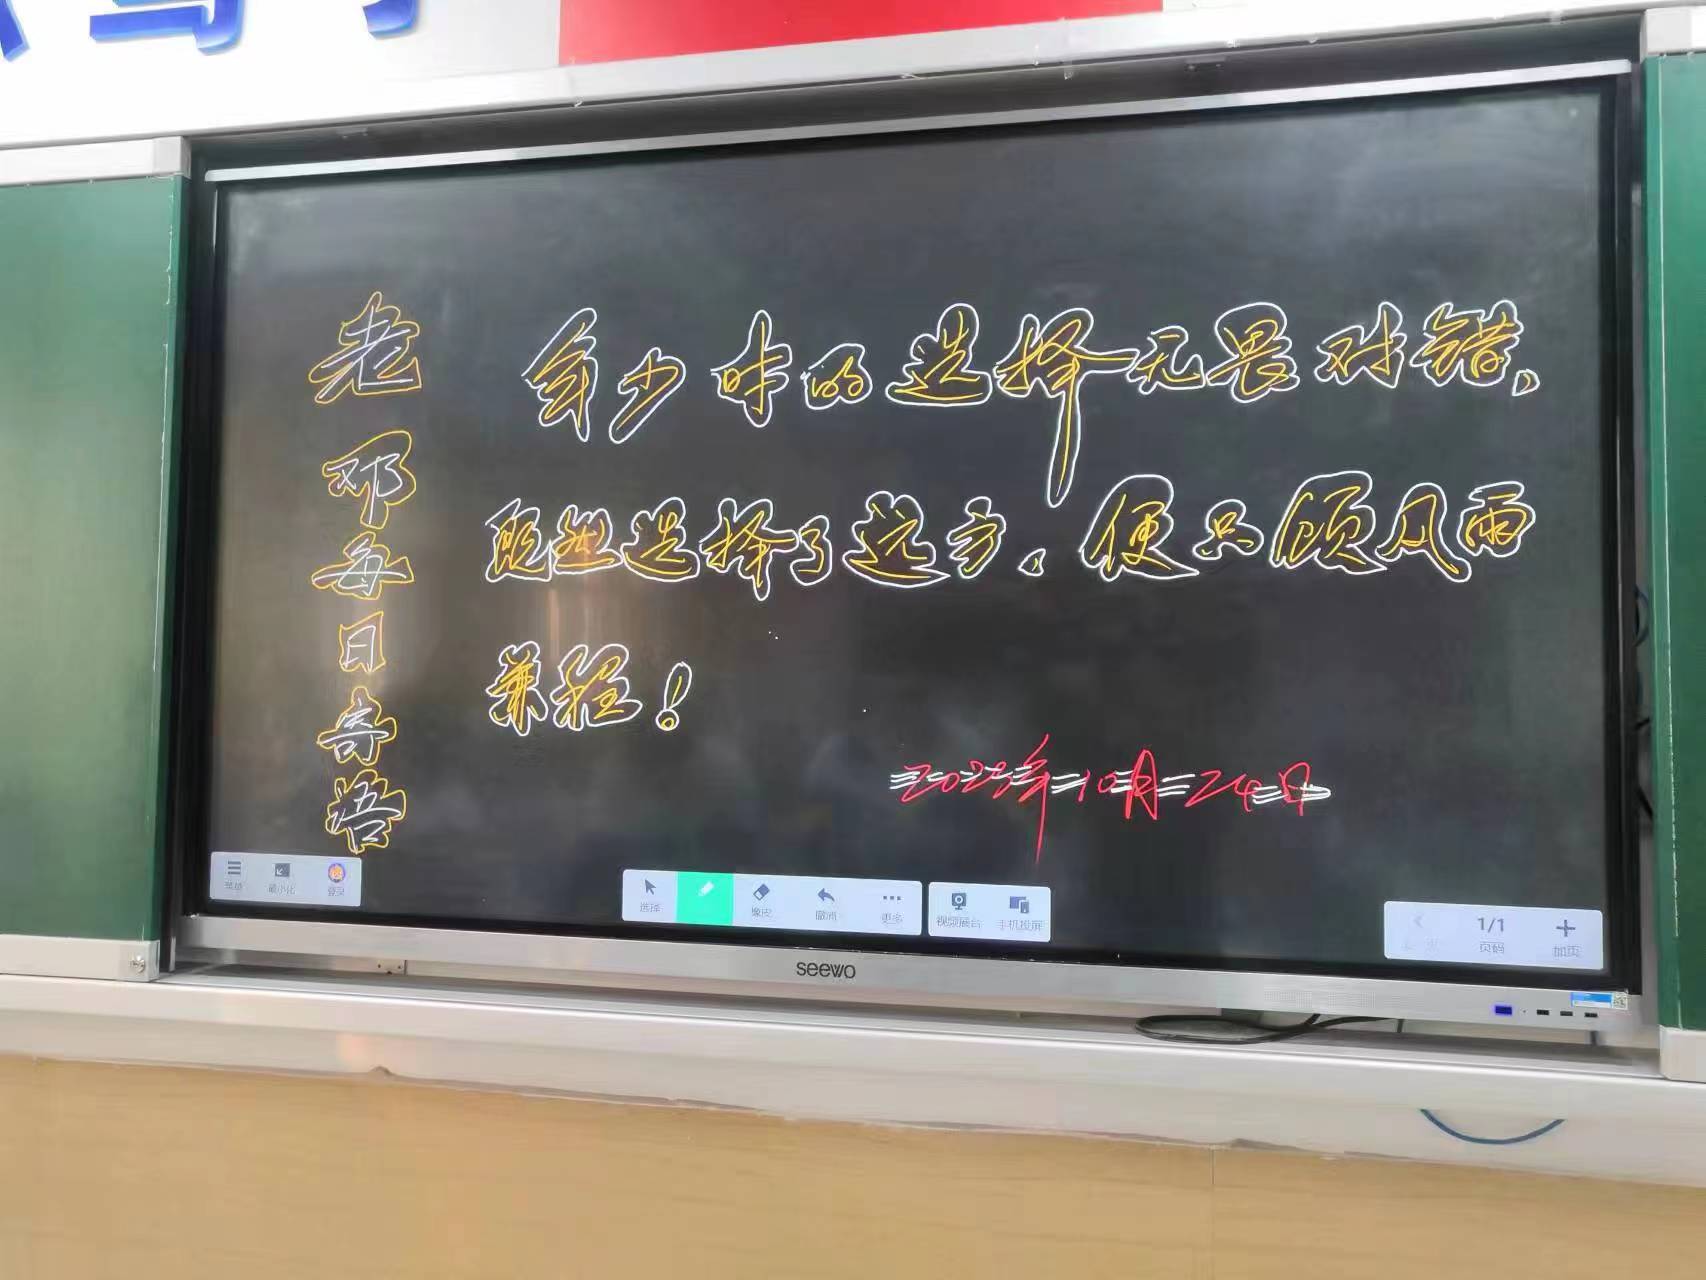 老邓每日寄语
年少时的选择无畏对错、
既然选择了远方、便只顾风雨
兼程！
2025年10月24日
菜单
最小化
登录
选择
橡皮
撤消
更多
视频展台
手机投屏
1/1
页码
加页
seewo